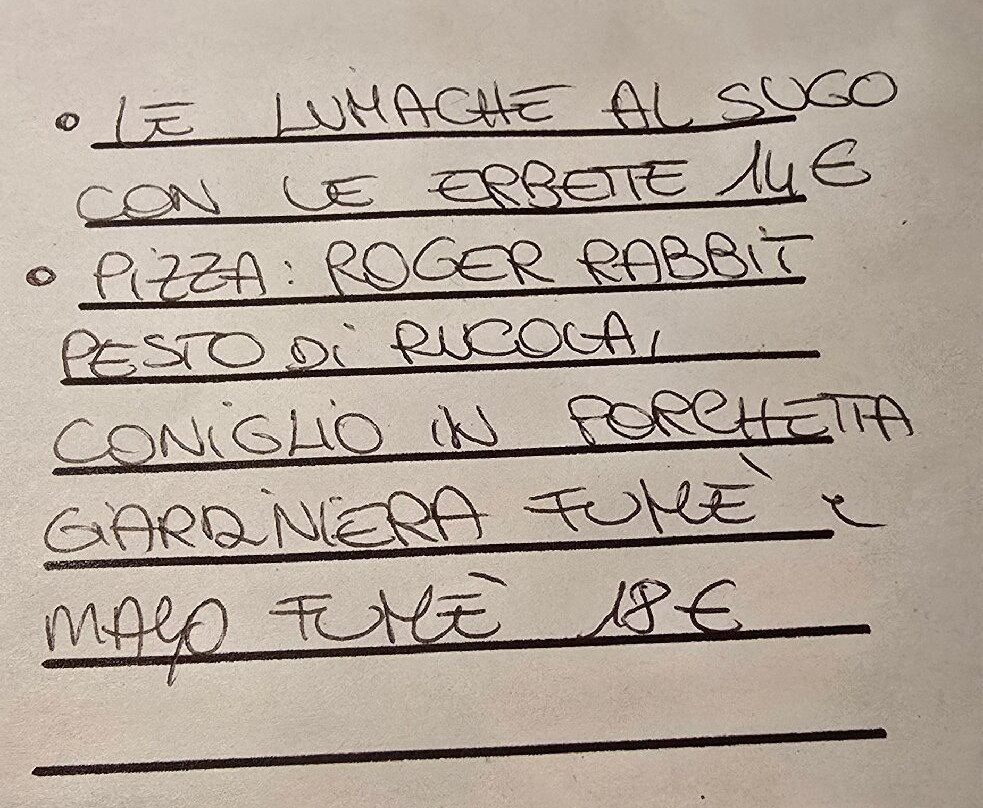 • LE LUMACHE AL SUGO
CON LE ERBETTE 14€
• PiZZA: ROGER RABBiT
PESTO Di RUCOLA,
CONiGLiO iN PORCHETTA
GiARDiNiERA FUMÈ e
MAYO FUMÈ 18€